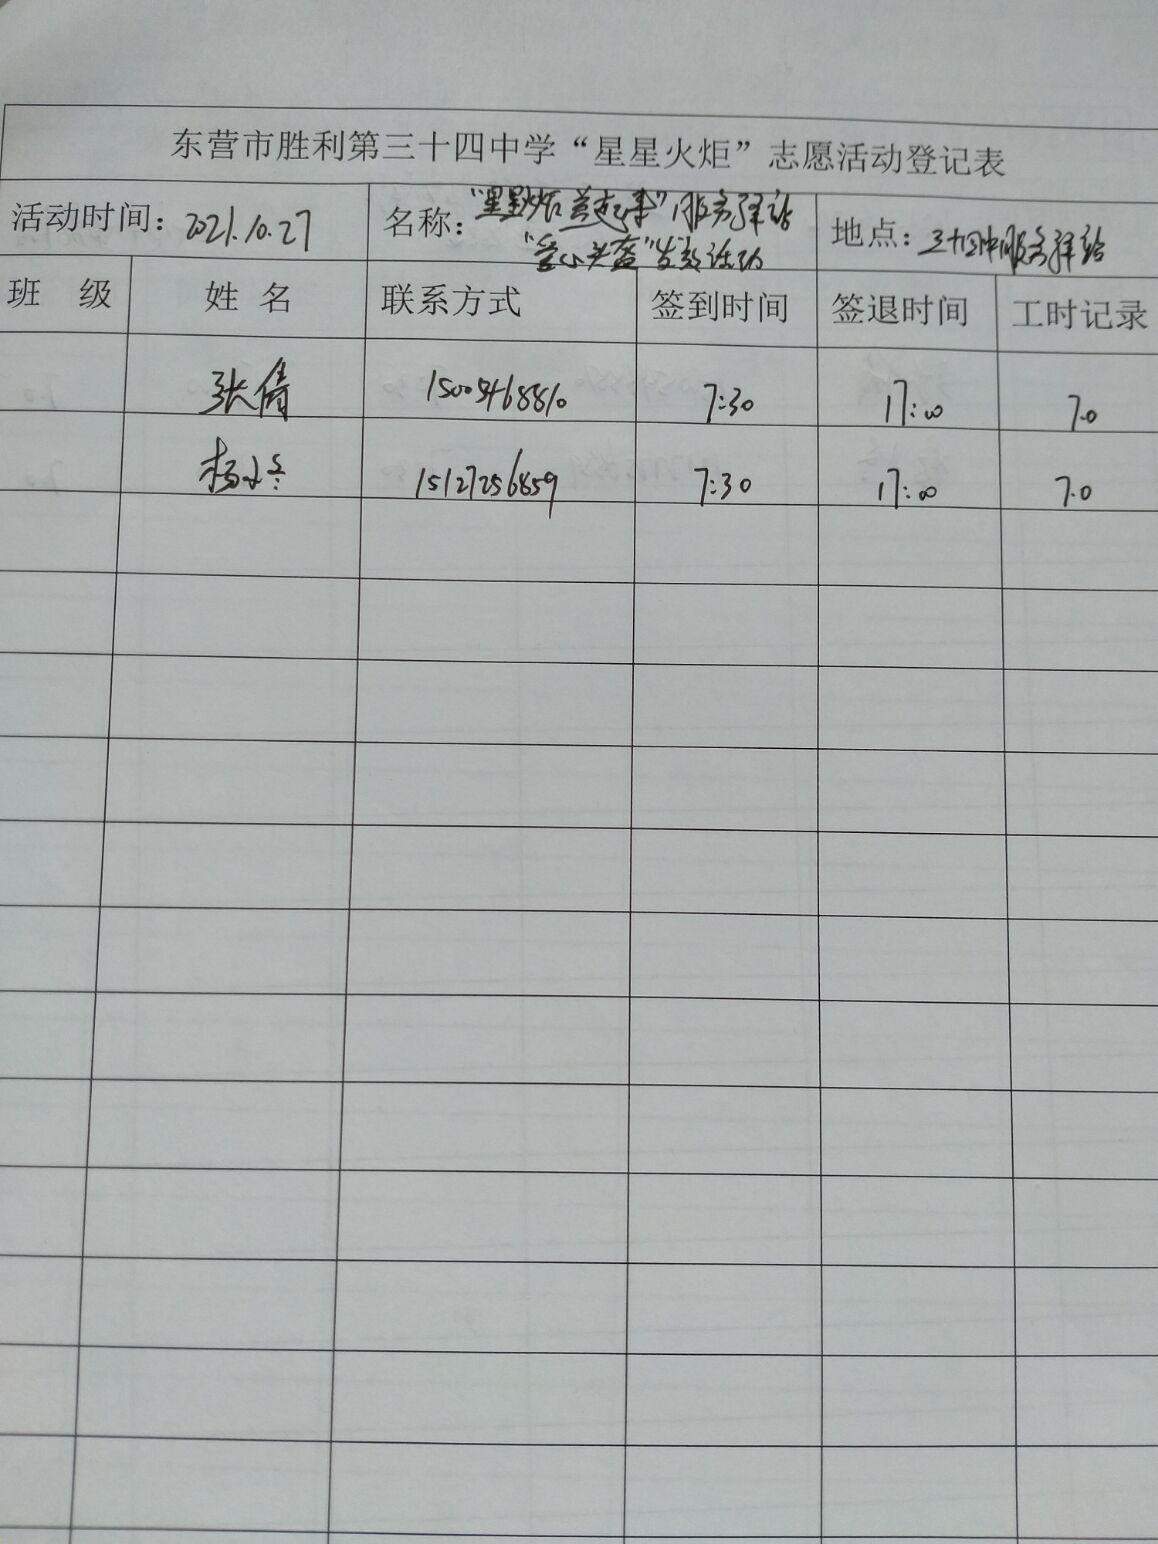 东营市胜利第三十四中学“星星火炬”志愿活动登记表
活动时间：2021.10.27 名称：“星星火炬益起来”服务驿站 地点：三十四中服务驿站
“爱心头盔”发放活动
班 级 姓 名 联系方式 签到时间 签退时间 工时记录
张倩 15005468810 7:30 17:00 7.0
杨 15127256859 7:30 17:00 7.0